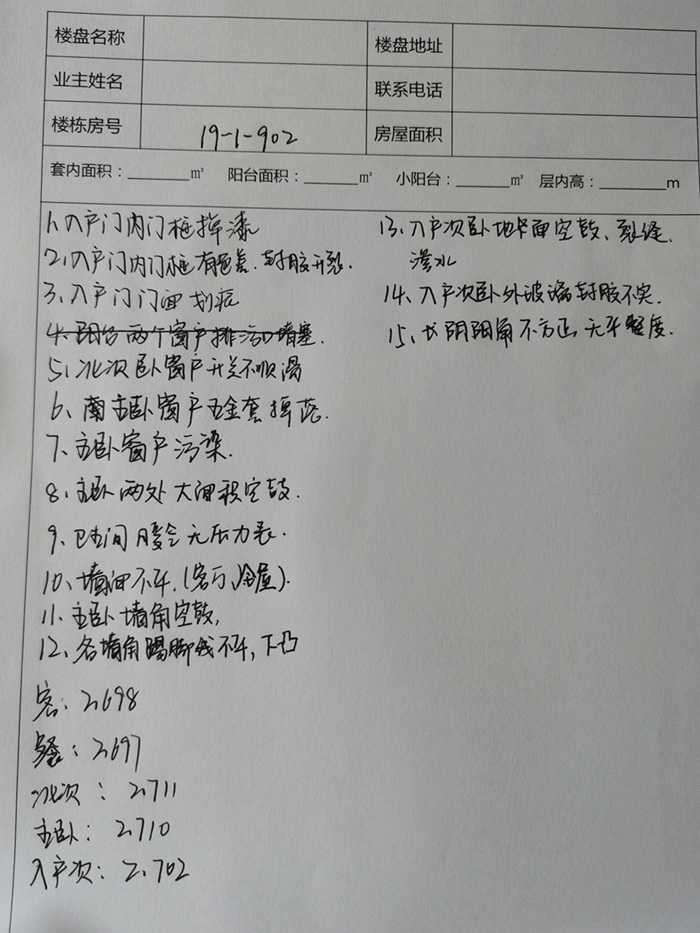 楼盘名称 楼盘地址
业主姓名 联系电话
楼栋房号 19-1-902 房屋面积
套内面积：______㎡ 阳台面积：______㎡ 小阳台：______㎡ 层内高：______m
1、入户门内门框掉漆
2、入户门内门框有色差、封胶开裂.
3、入户门门面划痕
4、阳台两个窗户排污口堵塞.
5、北次卧窗户开关不顺滑
6、南主卧窗户五金套掉落.
7、主卧窗户污染.
8、主卧两处大面积空鼓.
9、卫生间 无压力表.
10、墙面不平.(客厅、全屋).
11、主卧墙角空鼓,
12、各墙角踢脚线不平,下凸
客：2.698
餐：2.697
北次：2.711
主卧：2.710
入户次：2.702
13、入户次卧地面空鼓、裂缝.
渗水
14、入户次卧外玻璃封胶不实.
15、阴阳角不方正,无平整度.